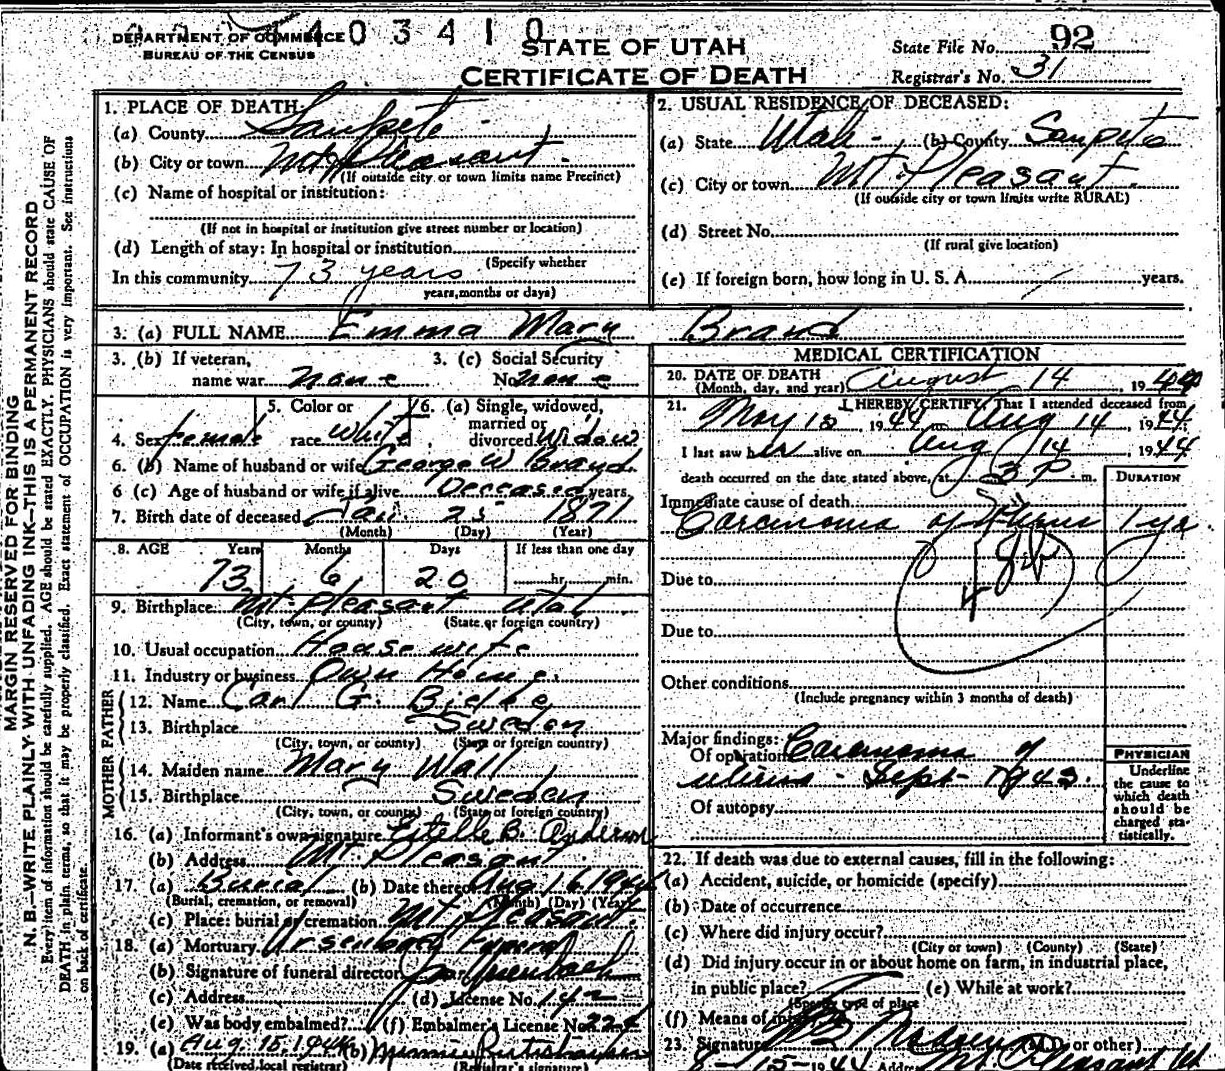 DEPARTMENT OF COMMERCE
BUREAU OF THE CENSUS
403410
STATE OF UTAH
CERTIFICATE OF DEATH
State File No. 92
Registrar's No. 31
MARGIN RESERVED FOR BINDING
N. B.—WRITE PLAINLY WITH UNFADING INK—THIS IS A PERMANENT RECORD
Every item of information should be carefully supplied. AGE should be stated EXACTLY. PHYSICIANS should state CAUSE OF
DEATH in plain terms, so that it may be properly classified. Exact statement of OCCUPATION is very important. See instructions
on back of certificate.
1. PLACE OF DEATH:
(a) County Sanpete
(b) City or town Mt Pleasant
(If outside city or town limits name Precinct)
(c) Name of hospital or institution:
(If not in hospital or institution give street number or location)
(d) Length of stay: In hospital or institution
(Specify whether
In this community 73 years
years, months or days)
2. USUAL RESIDENCE OF DECEASED:
(a) State Utah (b) County Sanpete
(c) City or town Mt. Pleasant
(If outside city or town limits write RURAL)
(d) Street No.
(If rural give location)
(e) If foreign born, how long in U. S. A. years.
3. (a) FULL NAME Emma Mary Brand
3. (b) If veteran, name war none
3. (c) Social Security No. none
4. Sex female
5. Color or race white
6. (a) Single, widowed, married or divorced Widow
6. (b) Name of husband or wife George W Brand
6 (c) Age of husband or wife if alive Deceased years.
7. Birth date of deceased Jan 25 1871
(Month) (Day) (Year)
8. AGE Years Months Days If less than one day
73 6 20 hr. min.
9. Birthplace Mt. Pleasant Utah
(City, town, or county) (State or foreign country)
10. Usual occupation House wife
11. Industry or business Own Home
FATHER
12. Name Carl G.
13. Birthplace Sweden
(City, town, or county) (State or foreign country)
MOTHER
14. Maiden name Mary Wall
15. Birthplace Sweden
(City, town, or county) (State or foreign country)
16. (a) Informant's own signature Estelle B. Anderson
(b) Address Mt. Pleasant
17. (a) Burial (b) Date thereof Aug 16 1944
(Burial, cremation, or removal) (Month) (Day) (Year)
(c) Place: burial or cremation Mt. Pleasant
18. (a) Mortuary Ursenbach Funeral
(b) Signature of funeral director Ursenbach
(c) Address (d) License No. 142
(e) Was body embalmed? (f) Embalmer's License No.
19. (a) Aug. 15, 1944 (b) Minnie
(Date received local registrar) (Registrar's signature)
MEDICAL CERTIFICATION
20. DATE OF DEATH
(Month, day, and year) August 14, 1944
21. I HEREBY CERTIFY, That I attended deceased from
May 12, 1944 to Aug 14, 1944
I last saw her alive on Aug 14 1944
death occurred on the date stated above, at 3 P. m.
DURATION
Immediate cause of death
Carcinoma of Uterus 1 yr.
48b
Due to
Due to
Other conditions
(Include pregnancy within 3 months of death)
Major findings:
Of operation Carcinoma of
uterus - Sept 1943.
Of autopsy
PHYSICIAN
Underline
the cause to
which death
should be
charged sta-
tistically.
22. If death was due to external causes, fill in the following:
(a) Accident, suicide, or homicide (specify)
(b) Date of occurrence
(c) Where did injury occur?
(City or town) (County) (State)
(d) Did injury occur in or about home on farm, in industrial place,
in public place? (e) While at work?
(Specify type of place
(f) Means of injury
23. Signature (M.D. or other)
8-15-1944 Address Mt. Pleasant Ut